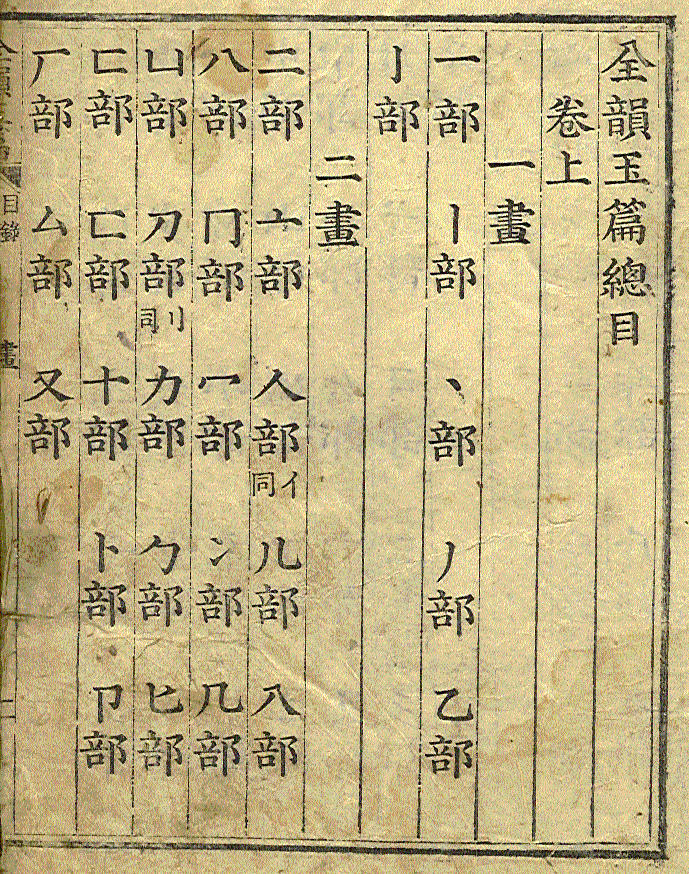 全韻玉篇總目
卷上
一畫
一部 丨部 丶部 丿部 乙部
亅部
二畫
二部 亠部 人部 亻同 儿部 入部
八部 冂部 冖部 冫部 几部
凵部 刀部 刂同 力部 勹部 匕部
匚部 匸部 十部 卜部 卩部
厂部 厶部 又部
目錄 畫